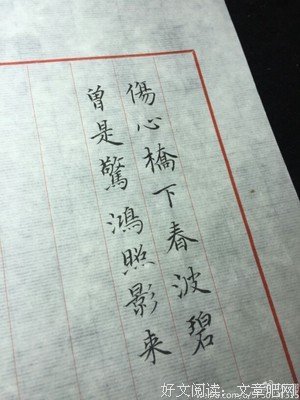 傷心橋下春波碧
曾是驚鴻照影来
好文阅读：文章吧网